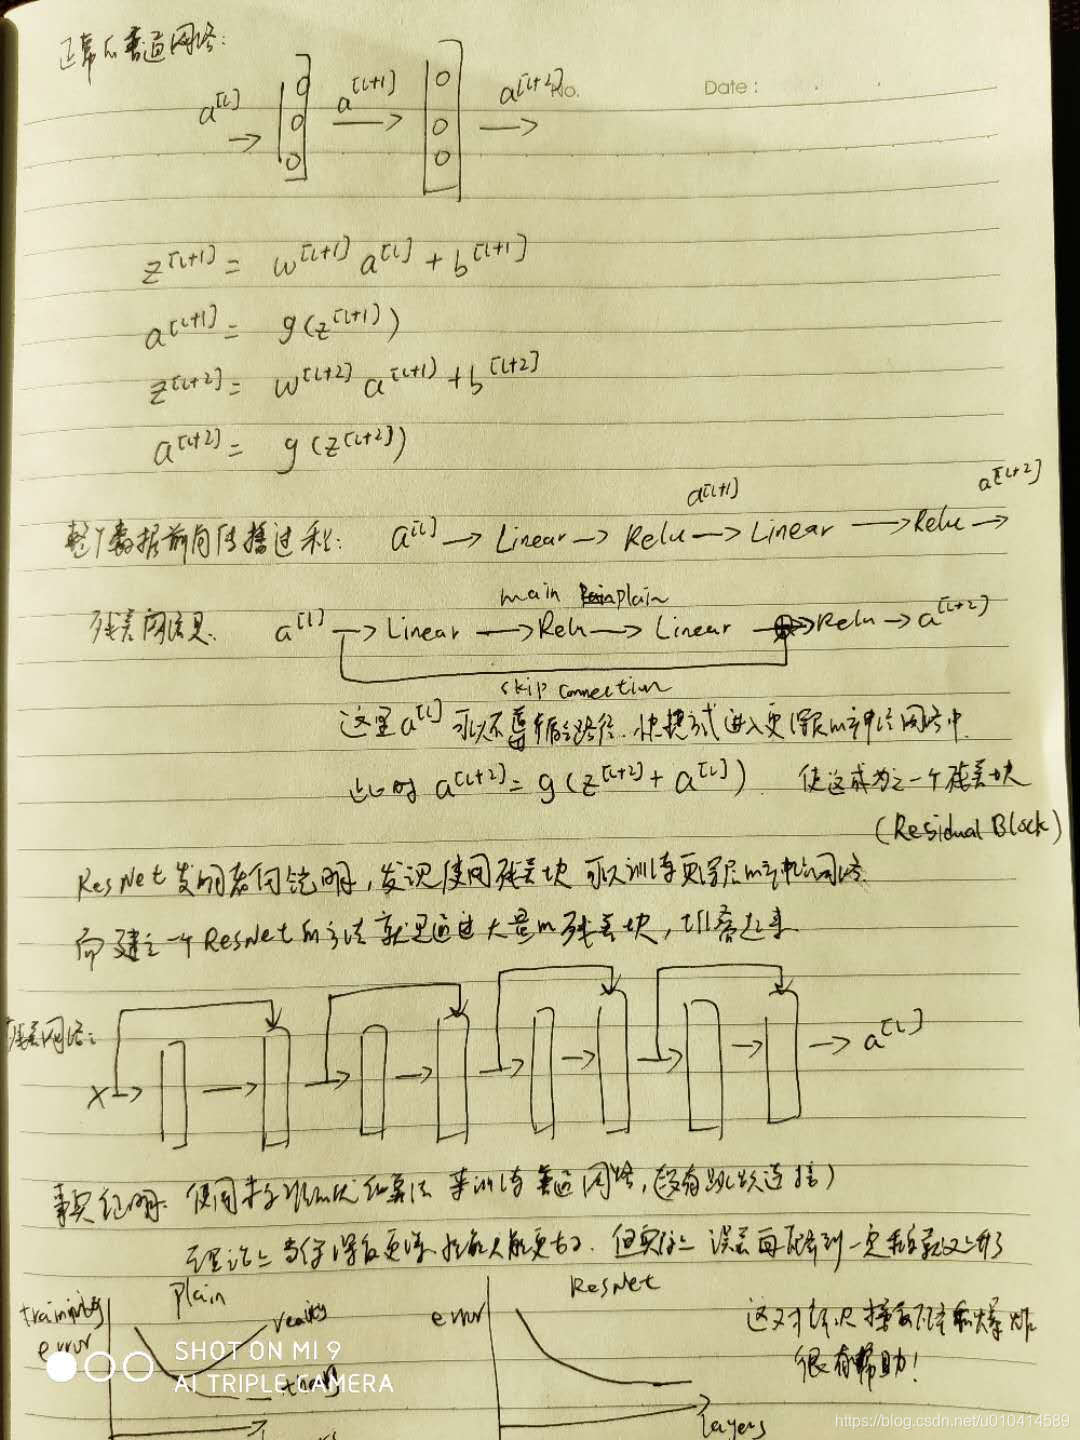 正常的普通网络:
a[l] a[l+1] a[l+2] No. Date:
z[l+1] = w[l+1] a[l] + b[l+1]
a[l+1] = g(z[l+1])
z[l+2] = w[l+2] a[l+1] + b[l+2]
a[l+2] = g(z[l+2])
a[l+1] a[l+2]
整个数据前向传播过程: a[l] → Linear → Relu → Linear → Relu →
main plain
残差网络是. a[l] → Linear → Relu → Linear → Relu → a[l+2]
skip connection
这里a[l] 可以不 路径. 快捷方式进入更深层的神经网络中.
此时 a[l+2] = g(z[l+2] + a[l]). 使这成为之一个残差块
(Residual Block)
ResNet 发明者何铠明, 发现使用残差块可以训练更深层的神经网络.
而建立一个ResNet的方法就是通过大量的残差块, 堆叠起来.
残差网络:
X → → → → → → → → a[l]
事实证明. 使用 优化算法 来训练普通网络, (没有跳跃连接)
理论上当你深度更深 性能只能更好. 但实际上 误差再下降到一定程度又上升了
training error plain reality theory
error ResNet layers
这对解决梯度下降和爆炸
很有帮助!
SHOT ON MI 9
AI TRIPLE CAMERA
https://blog.csdn.net/u010414589